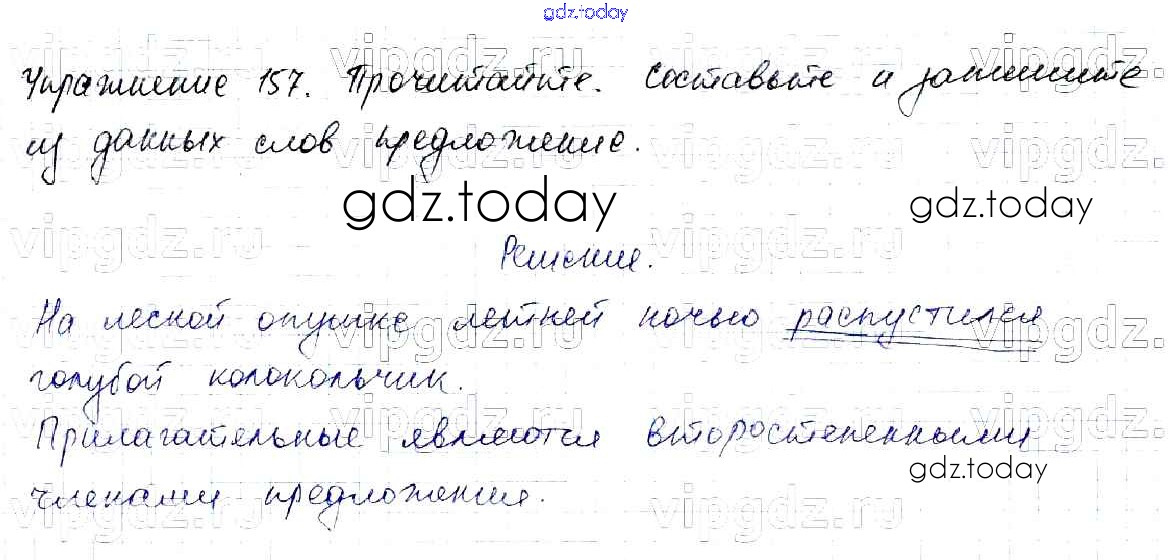 gdz.today
Упражнение 157. Прочитайте. Составьте и запишите
из данных слов предложение.
gdz.today
gdz.today
Решение.
На лесной опушке летней ночью распустился
голубой колокольчик.
Прилагательные являются второстепенными
gdz.today
членами предложения.
vipgdz.ru